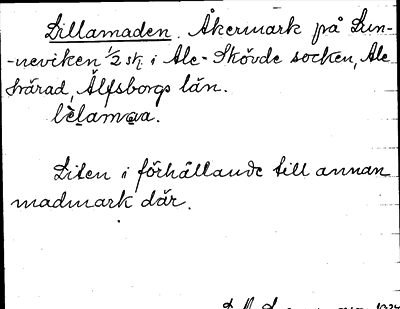 Lillamaden. Åkermark på Sun-
-neviken 1/2 sk i Ale-Skövde socken, Ale
härad, Älfsborgs län.
Liten i förhållande till annan
madmark där.